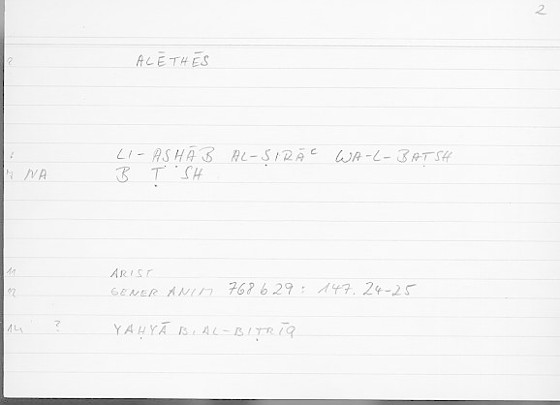 2
2 ALĒTHĒS
LI-AṢḤĀB AL-ṢIRĀʿ WA-L-BAṬSH
NA B Ṭ SH
11 ARIST
12 GENER ANIM 768b29: 147.24-25
14 ? YAḤYĀ B.AL-BIṬRĪQ